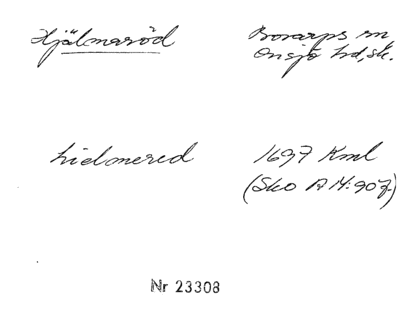 Hjälmaröd Borarps sn,
Onsjö hd, sk.
hielmered 1697 Kml
(Sko A 14:907)
Nr 23308